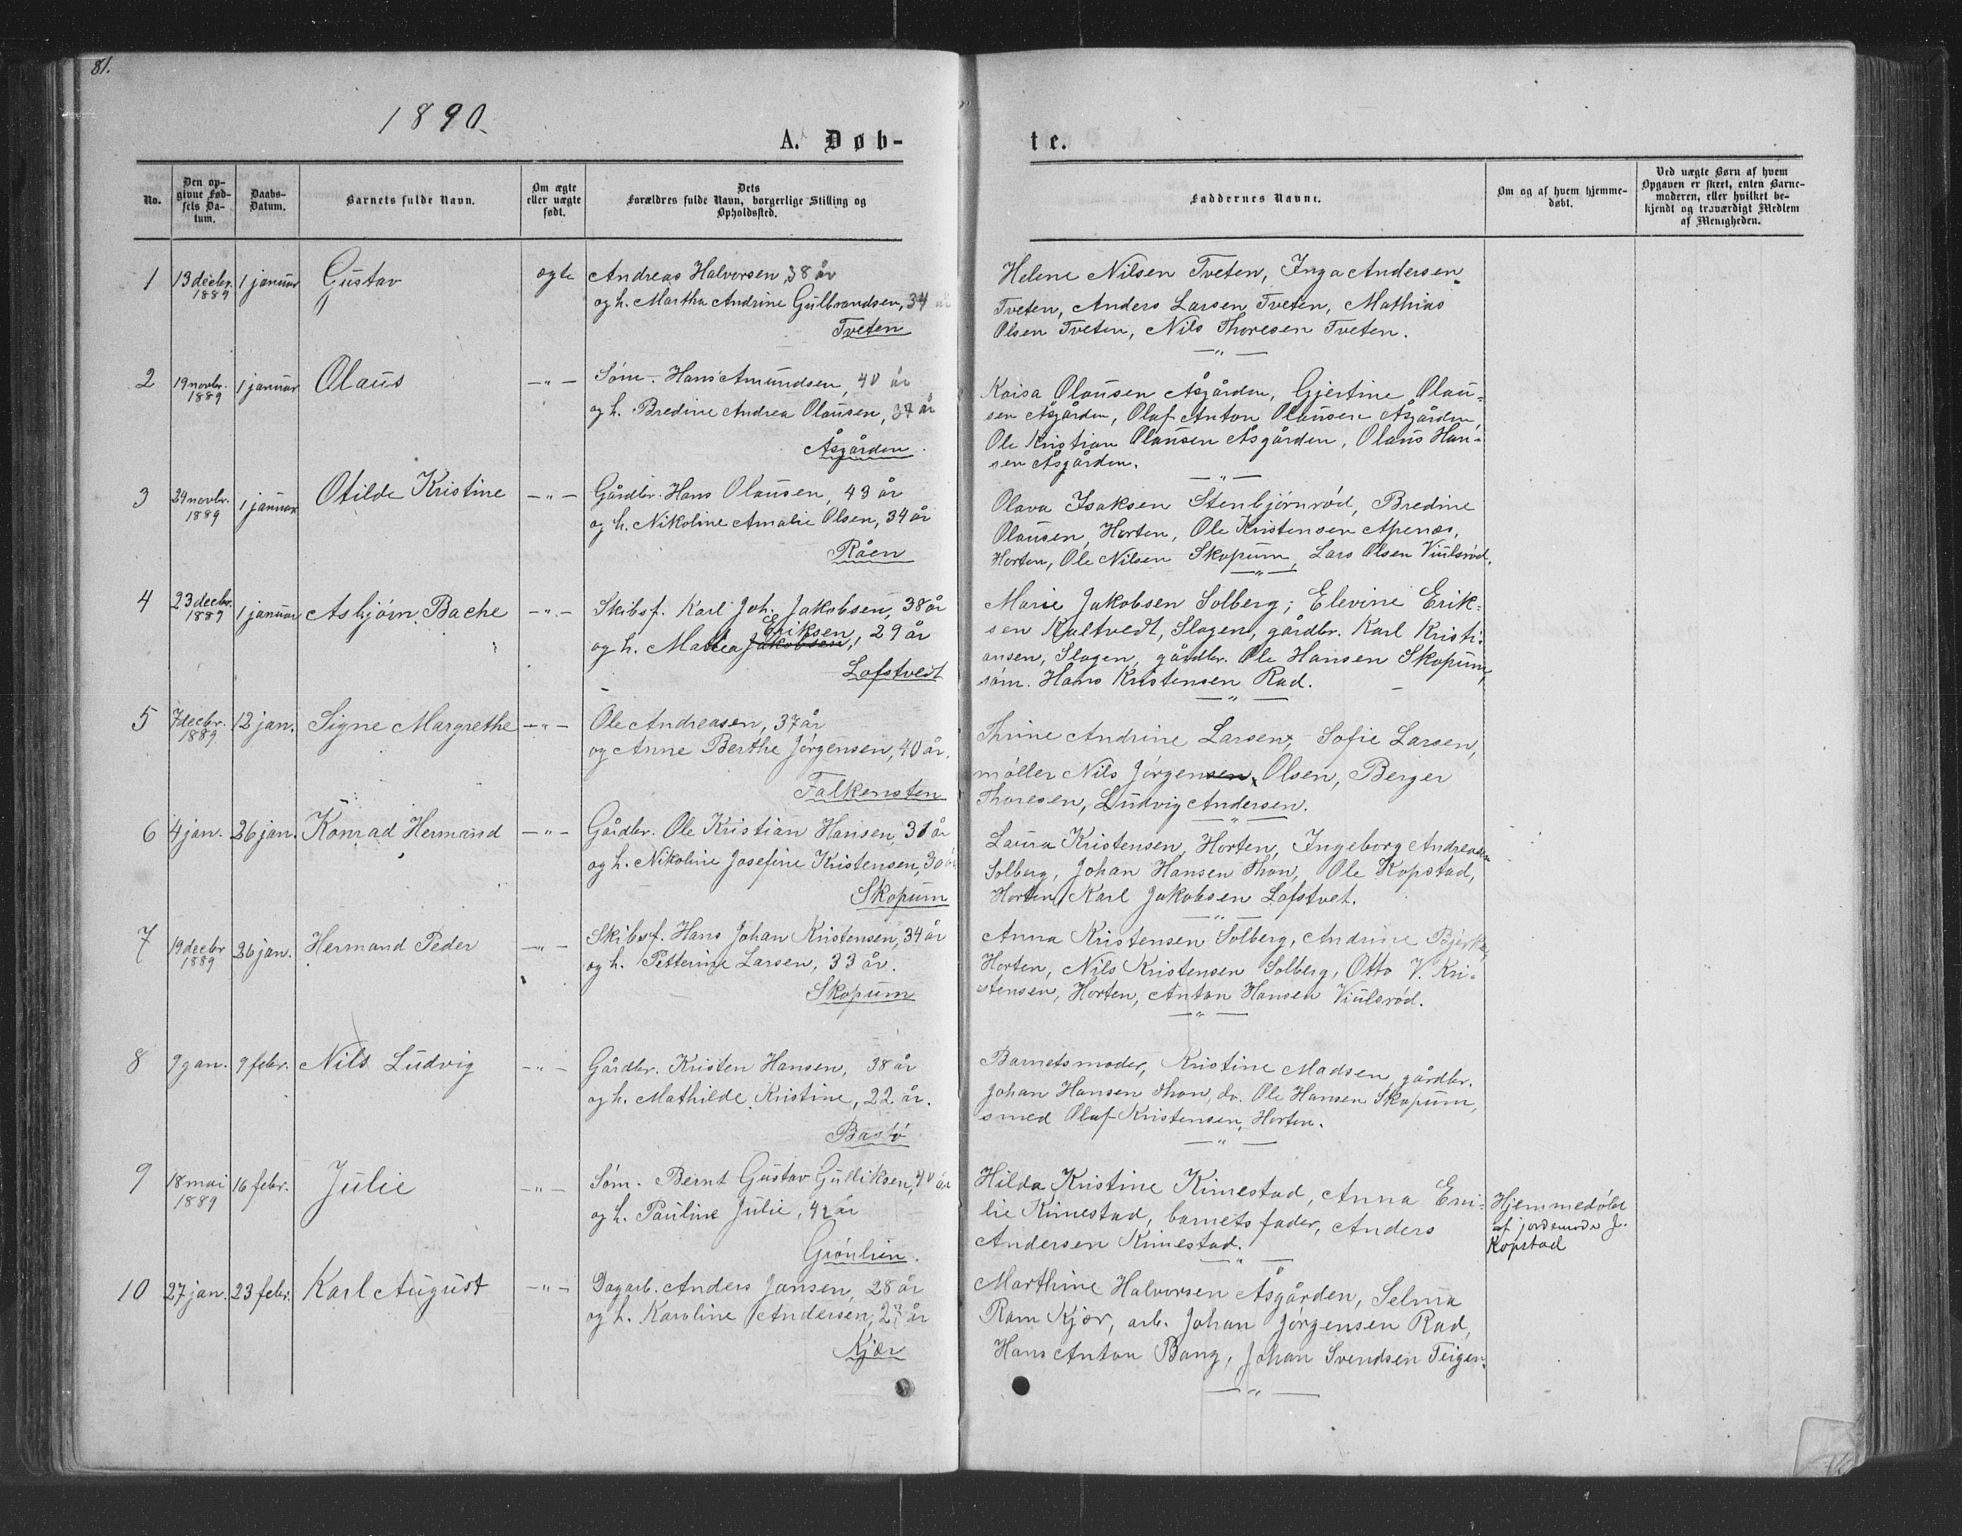 81.
1890.
A. Døb-
te.
No.
Den op-
givne Fød-
sels Da-
tum.
Daabs-
Datum.
Barnets fulde Navn.
Om ægte
eller uægte
født.
Dets
Forældres fulde Navn, borgerlige Stilling og
Opholdssted.
Faddernes Navne.
Om og af hvem hjemme-
døbt.
Ved uægte Børn af hvem
Opgaven er skeet, enten Barne-
moderen, eller hvilket be-
kjendt og troværdigt Medlem
af Menigheden.
1 13 decbr. 1889 1 januar Gustav ægte
Andreas Halvorsen, 38 år
og h. Martha Andrine Gulbrandsen, 34 år
Tveten
Helene Nilsen Tveten, Inga Andersen
Tveten, Anders Larsen Tveten, Mathias
Olsen Tveten, Nils Thoresen Tveten.
2 19 novbr. 1889 1 januar Olaus —"—
Søm. Hans Amundsen, 40 år
og h. Bredine Andrea Olausen, 37 år
Åsgården.
Kaisa Olausen Åsgården, Gjertine Olau-
sen Åsgården, Olaf Anton Olausen Åsgården,
Ole Kristian Olausen Åsgården, Olaus Han-
sen Åsgården.
3 24 novbr. 1889 1 januar Otilde Kristine —"—
Gårdbr. Hans Olausen, 43 år
og h. Nikoline Amalie Olsen, 34 år
Råen
Olava Isaksen Stenbjørnrød, Bredine
Olausen, Horten, Ole Kristensen Apenæs,
Horten, Ole Nilsen Skopum, Lars Olsen Viulsrød.
4 23 decbr. 1889 1 januar Asbjørn Bache —"—
Skibsf. Karl Joh. Jakobsen, 38 år
Eriksen
og h. Mathea Jakobsen, 29 år
Lofstvedt
Marie Jakobsen Solberg; Elevine Erik-
sen Kaltvedt, Slagen, gårdbr. Karl Kristi-
ansen, Slagen, gårdbr. Ole Hansen Skopum,
søm. Hans Kristensen Rad.
5 7 decbr. 1889 12 jan. Signe Margrethe —"—
Ole Andreasen, 37 år
og Anne Berthe Jørgensen, 40 år.
Falkensten
Thrine Andrine Larsen, Sofie Larsen,
møller Nils Jørgensen, Olsen, Berger
Thoresen, Ludvig Andersen.
6 4 jan. 26 jan. Konrad Hermand —"—
Gårdbr. Ole Kristian Hansen, 31 år
og h. Nikoline Josefine Kristensen, 30 år
Skopum
Laura Kristensen, Horten, Ingeborg Andreasen
Solberg, Johan Hansen Thon, Ole Kopstad,
Horten, Karl Jakobsen Lofstvet.
7 19 decbr 1889 26 jan. Hermand Peder —"—
Skibsf. Hans Johan Kristensen, 34 år
og h. Petterine Larsen, 33 år.
Skopum
Anna Kristensen Solberg, Andrine Bjerke,
Horten, Nils Kristensen Solberg, Otto V. Kri-
stensen, Horten, Anton Hansen Viulsrød.
8 9 jan. 9 febr. Nils Ludvig —"—
Gårdbr. Kristen Hansen, 38 år
og h. Mathilde Kristine, 22 år.
Bastø
Barnets moder, Kristine Madsen, gårdbr.
Johan Hansen Thon, do. Ole Hansen Skopum,
smed Olaf Kristensen, Horten.
9 18 mai 1889 16 febr. Julie —"—
Søm. Bernt Gustav Gulliksen, 40 år
og h. Pauline Julie, 42 år
Grønlien.
Hilda Kristine Kimestad, Anna Emi-
lie Kimestad, barnets fader, Anders
Andersen Kimestad.
Hjemmedøbt
af jordemode J.
Kopstad
10 27 jan. 23 febr. Karl August —"—
Dagarb. Anders Jansen, 28 år
og h. Karoline Andersen, 27 år
Kjær
Marthine Halvorsen Åsgården, Selma
Ram Kjær, arb. Johan Jørgensen Rad,
Hans Anton Bang, Johan Svendsen Teigen.